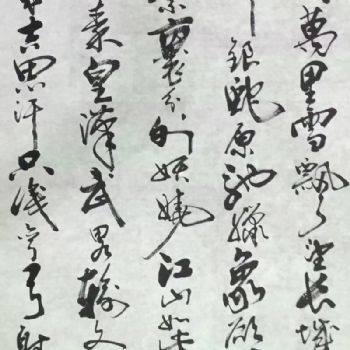 萬里雪飄望長城
銀蛇原馳蠟象欲
裹分外妖嬈江山如此
秦皇漢武略輸文
吉思汗只識彎弓射